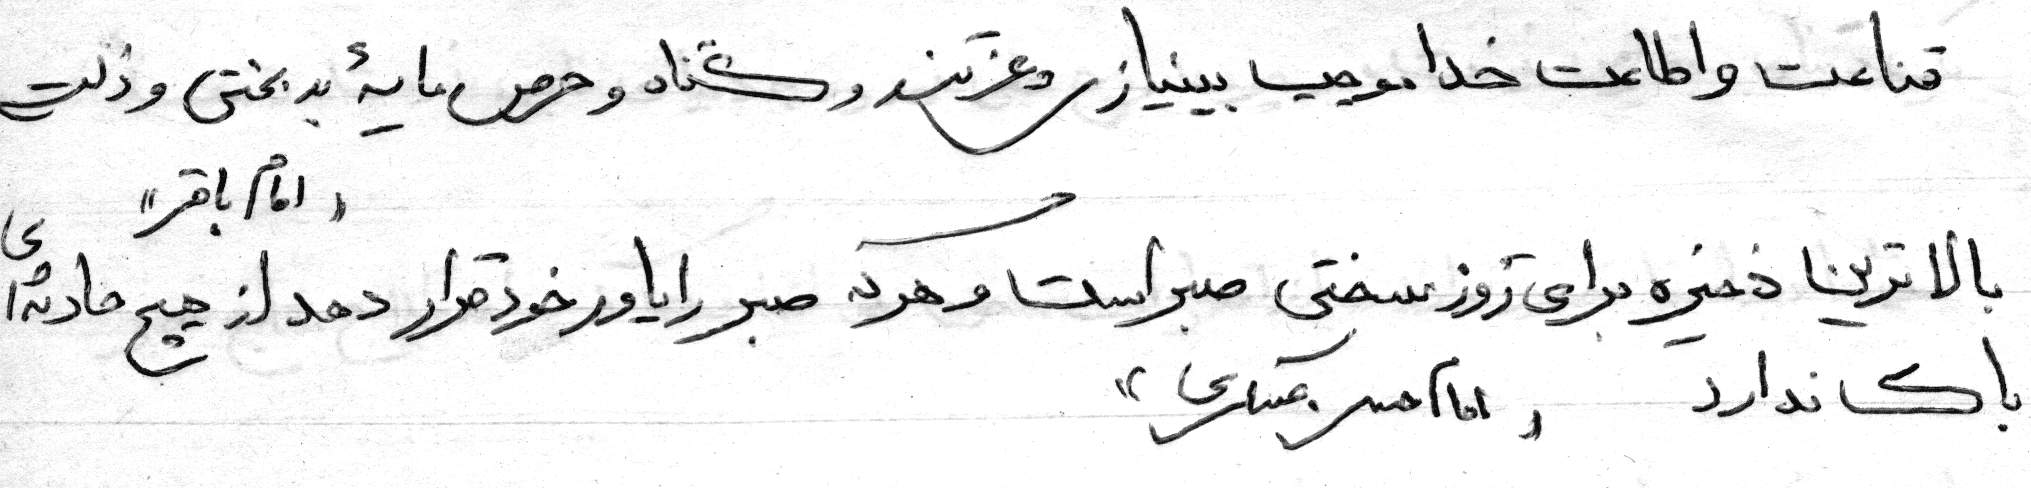 قناعت و اطاعت خدا موجب بینیازی و عزتند و گناه و حرص مایهٔ بدبختی و ذلت
"امام باقر"
بالاترین ذخیره برای روز سختی صبر است و هر که صبر را یاور خود قرار دهد از هیچ حادثه‌ای
باک ندارد "امام حسن عسکری"